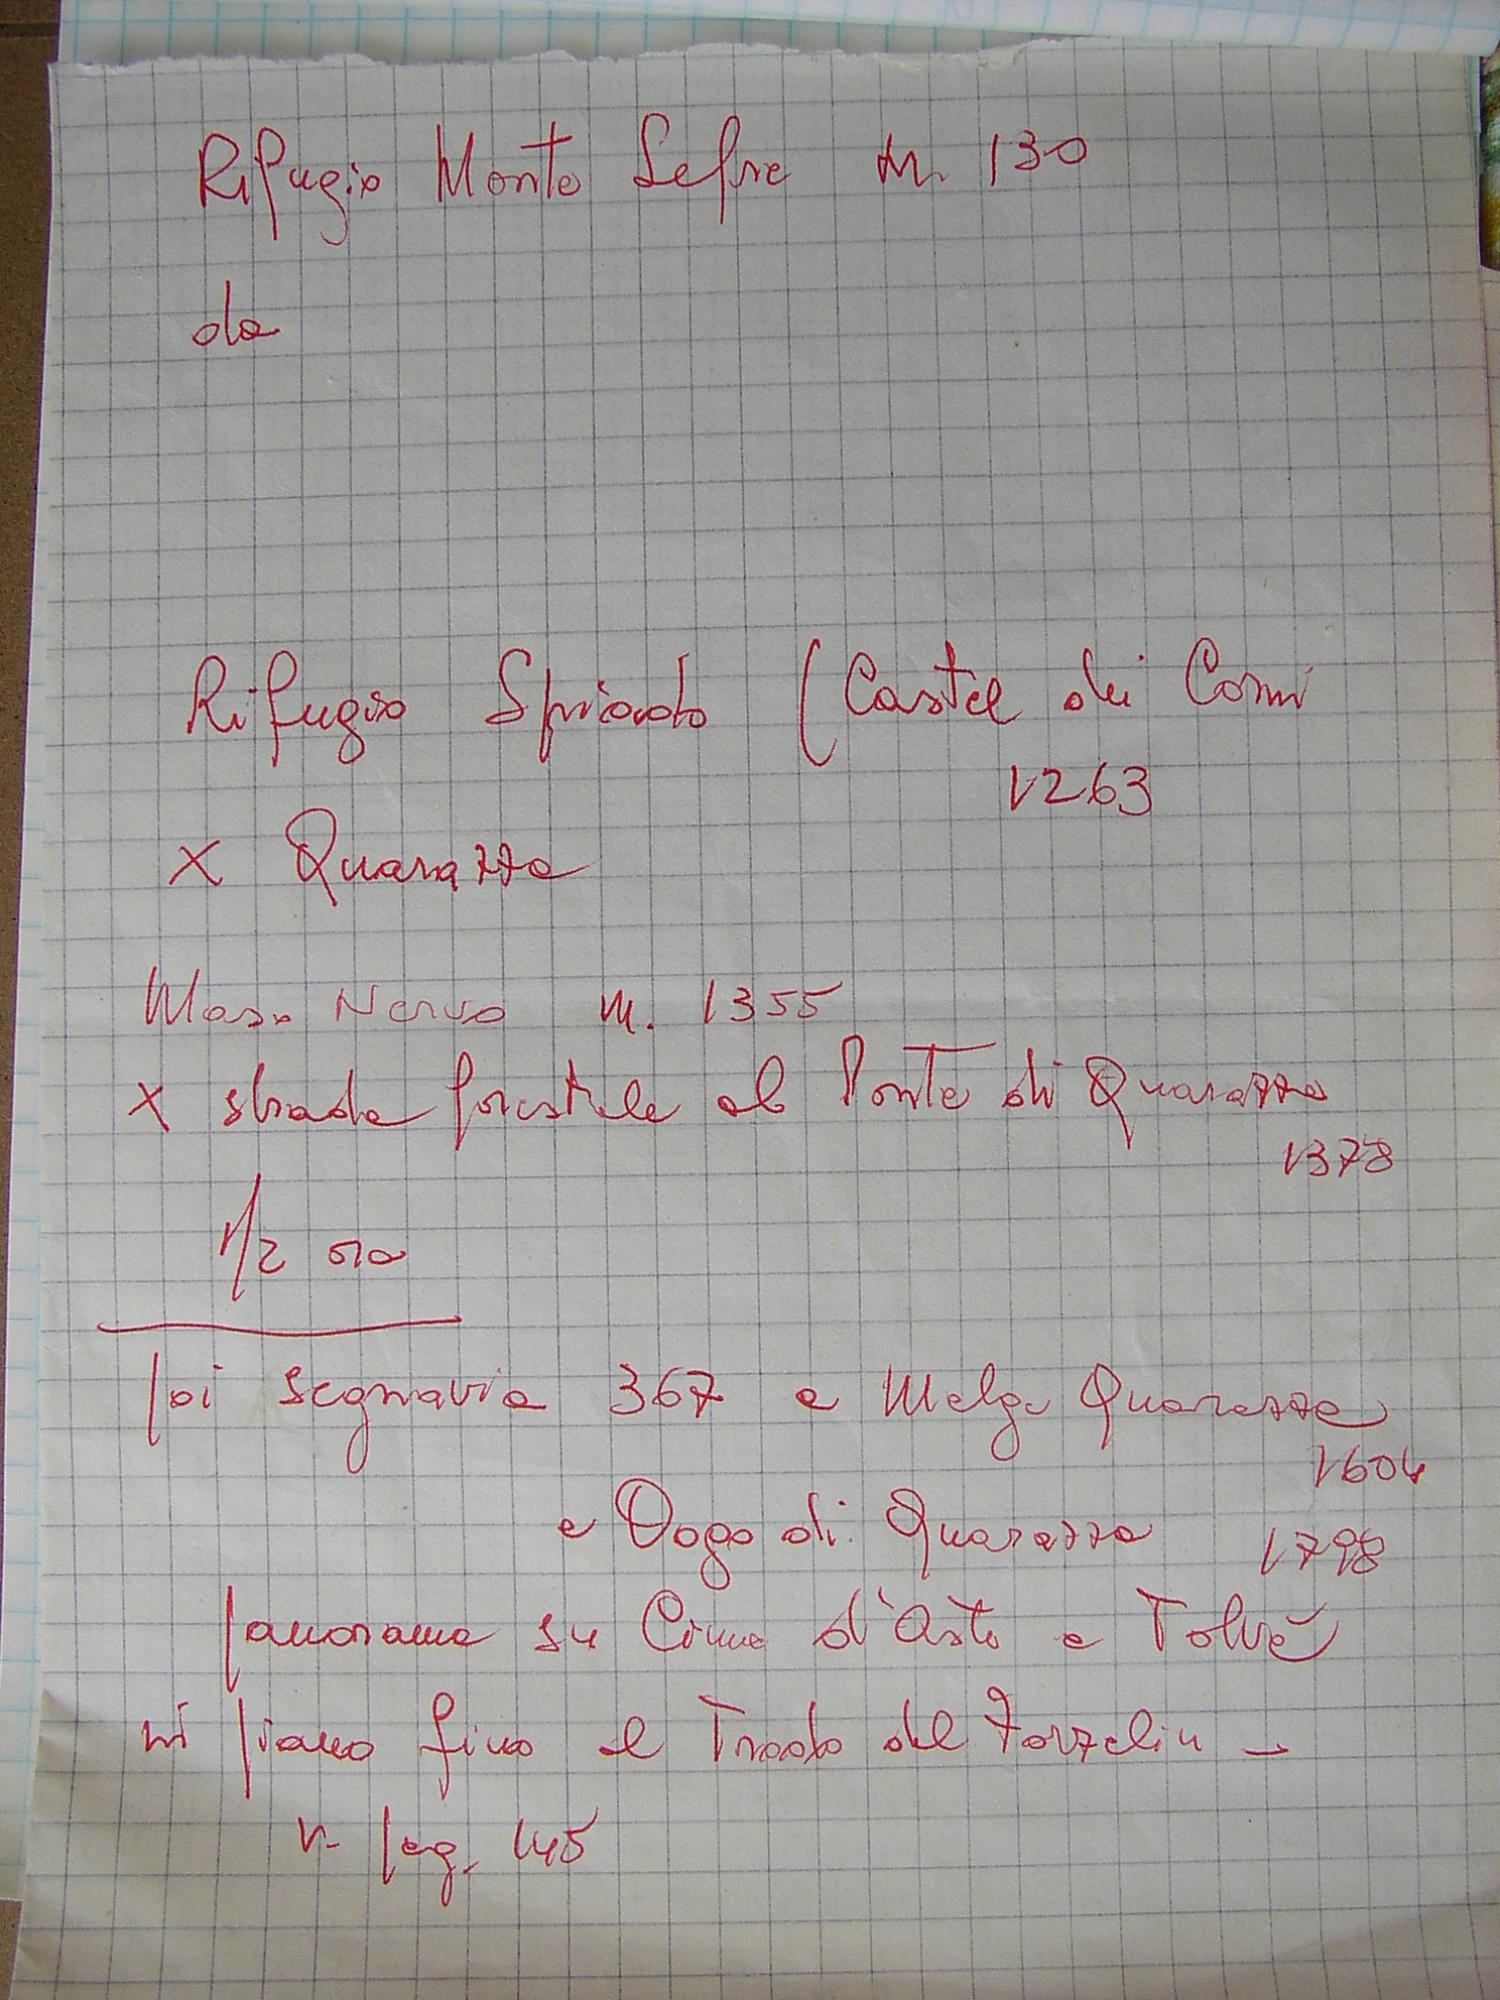 Rifugio Monte Lefre m. 130
da
Rifugio Spiado (Castel dei Corni
1263
x Quarazza
Maso Nervo m. 1355
x strada forestale al Ponte di Quarazza
1378
1/2 ora
poi segnavia 367 a Malga Quarazza
1604
e Dogo di Quarazza 1798
panorama su Cima d'Asta e Tolvà
in piano fino al Trodo del Forzelin -
v. pag. 145